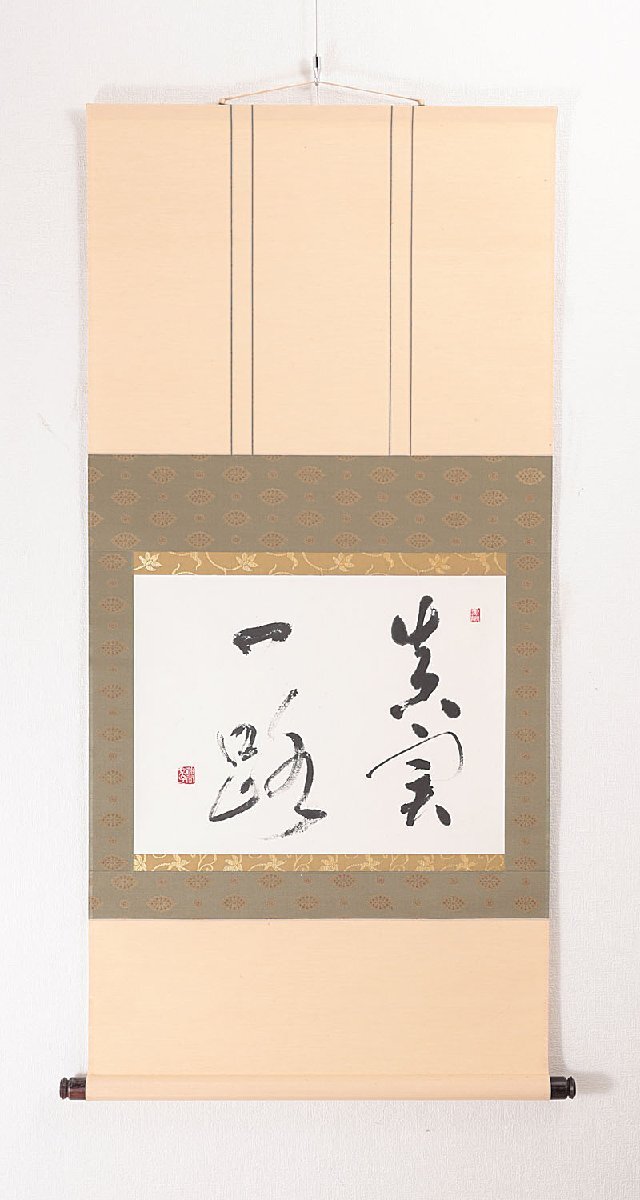 真実
一路